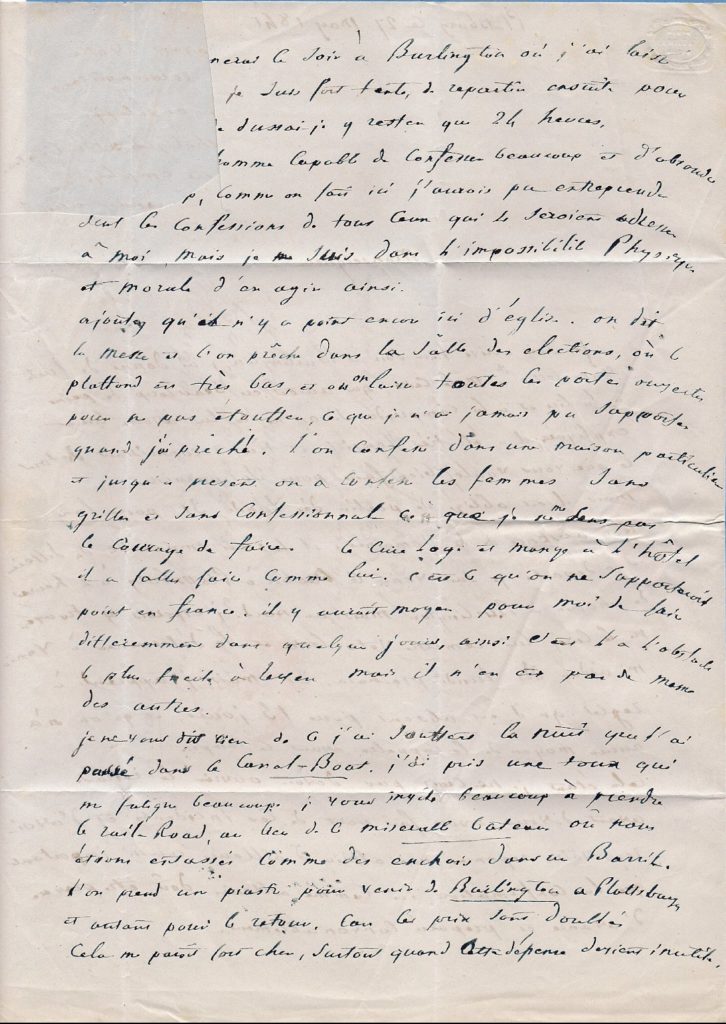 nerai le soir à Burlington où j'ai laissé
je suis fort tenté, de repartir ensuite pour
dussai-je y rester que 24 heures,
homme capable de confesser beaucoup et d'absoudre
p, comme on fait ici j'aurois pu entreprendre
les confessions de tous ceux qui se seroient adressés
à moi, mais je suis dans l'impossibilité Physique
et morale d'en agir ainsi.
ajoutez qu'il n'y a point encore ici d'église. on dit
la messe et l'on prêche dans la salle des elections, où le
plattond est très bas, et on laisse toutes les portes ouvertes
pour ne pas étouffer, ce que je n'ai jamais pu supporter
quand j'ai prêché. l'on confesse dans une maison particulière
et jusqu'a present on a confessé les femmes sans
grilles et sans confessionnal ce que je ne me sens pas
le courage de faire. le curé loge et mange à l'hôtel
il a fallu faire comme lui. c'est ce qu'on ne supporteroit
point en france. il y auroit moyen pour moi de faire
differemment dans quelque jours, ainsi c'est là l'obstacle
le plus facile à lever mais il n'en est pas de meme
des autres.
je ne vous dis rien de ce j'ai souffert la nuit que j'ai
passé dans le Canal-Boat. j'ai pris une toux qui
me fatigue beaucoup. je vous invite beaucoup à prendre
le rail-Road, au lieu de ce miserable bateau où nous
étions entassés comme des enchois dans un Barril.
l'on prend un piastre pour venir de Burlington a Plattsburg
et autant pour le retour. car les prix sont doublés
Cela me parait fort cher, surtout quand cette dépense devient inutile.